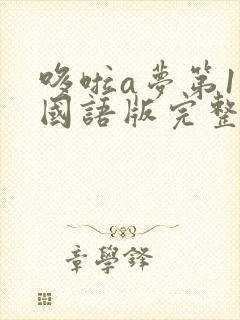 哆啦a夢第1
國語版完整
章學鋒